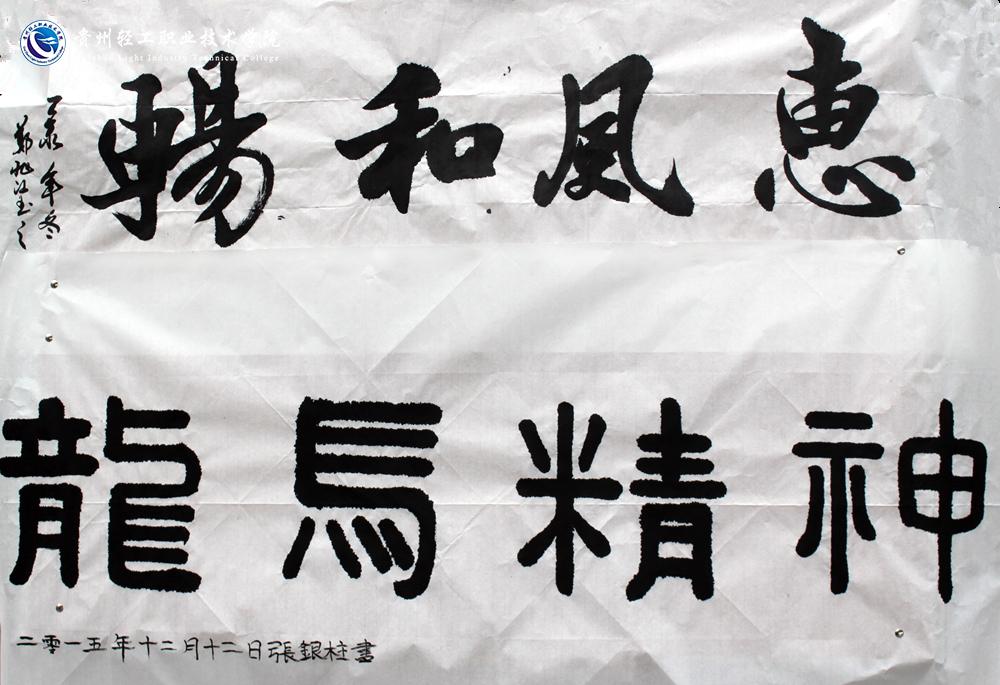 贵州轻工职业技术学院
Guizhou Light Industry Technical College
惠風和暢
乙未年冬
龍馬精神
二零一五年十二月十二日張銀柱書